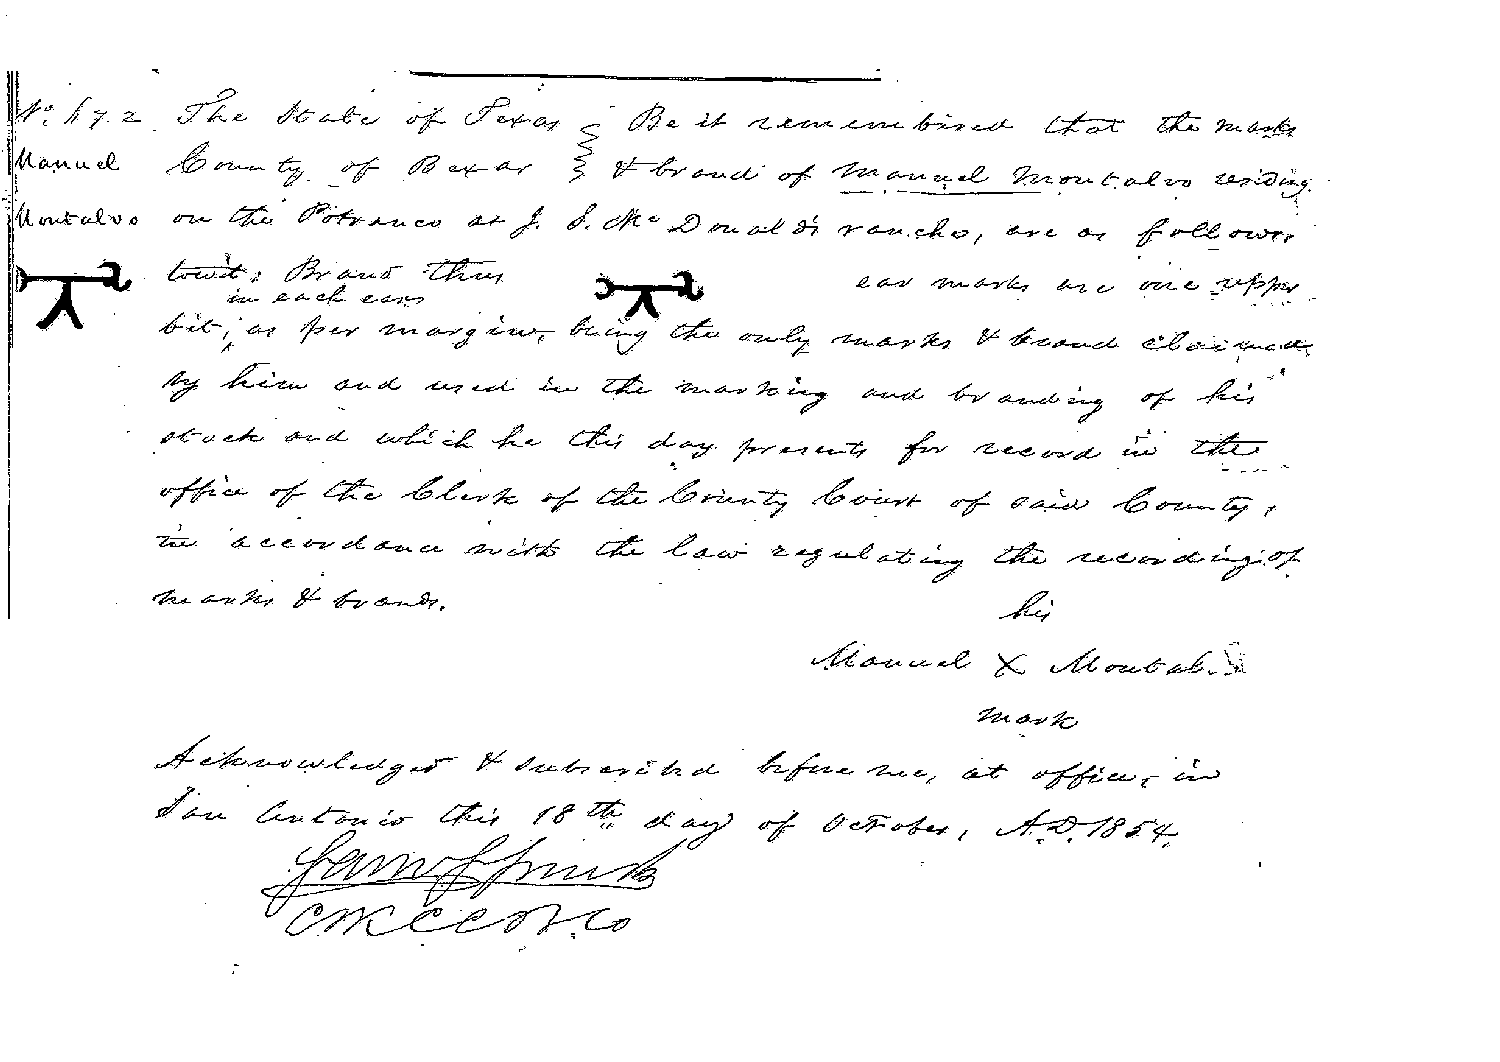 No. 672 The State of Texas Be it remembered that the marks
Manuel County of Bexar & brand of Manuel Montalvo residing
Montalvo on the Potranco at J. S. McDonald's rancho, are as follows
towit: Brand thus ear marks are one upper
in each ear
bit, as per margin, being the only marks & brand claimed
by him and used in the marking and branding of his
stock and which he this day presents for record in the
office of the Clerk of the County Court of said County,
in accordance with the law regulating the recording of
marks & brands.
his
Manuel X Montalvo
mark
Acknowledged & subscribed before me, at office, in
San Antonio this 18th day of October, A.D. 1854.
CLKCCOBCo